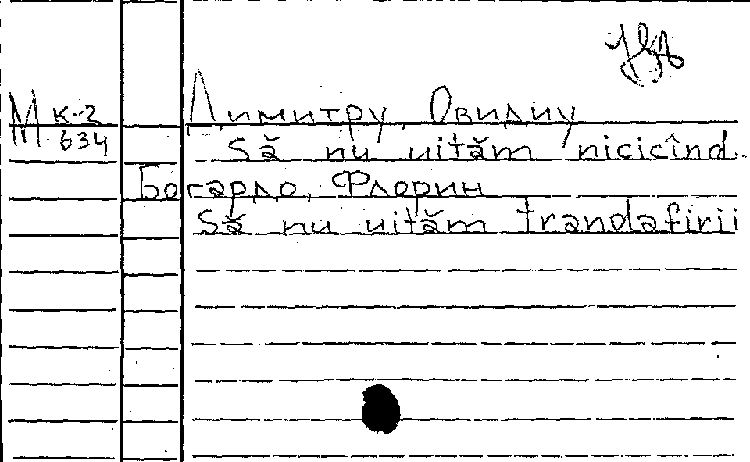 М к-2 634
Димитру, Овидиу
Să nu uităm nicicînd.
Богардо, Флорин
Să nu uităm trandafirii